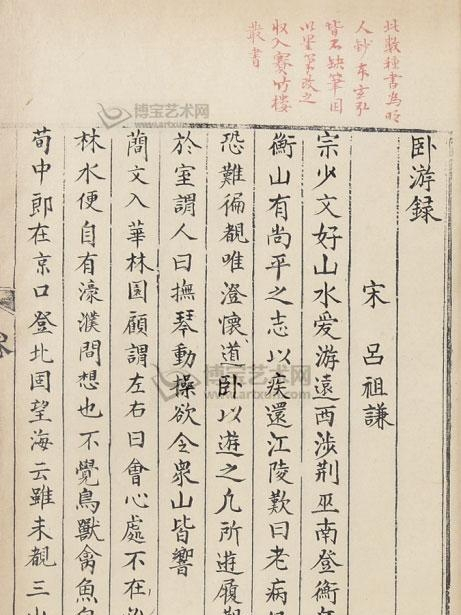 此數種書為明
人鈔本玄弘
皆不缺筆因
以墨筆改之
收入賽竹樓
叢書
卧游録
宋 呂祖謙
宗少文好山水愛游遠西涉荆巫南登衡
衡山有尚平之志以疾還江陵歎曰老病
恐難徧覩唯澄懷道卧以遊之凡所遊履
於室謂人曰撫琴動操欲令衆山皆響
簡文入華林園顧謂左右曰會心處不在
林水便自有濠濮間想也不覺鳥獸禽魚自
荀中郎在京口登北固望海云雖未覩三山
博宝艺术网
www.artxun.com
博宝艺术网
www.artxun.com